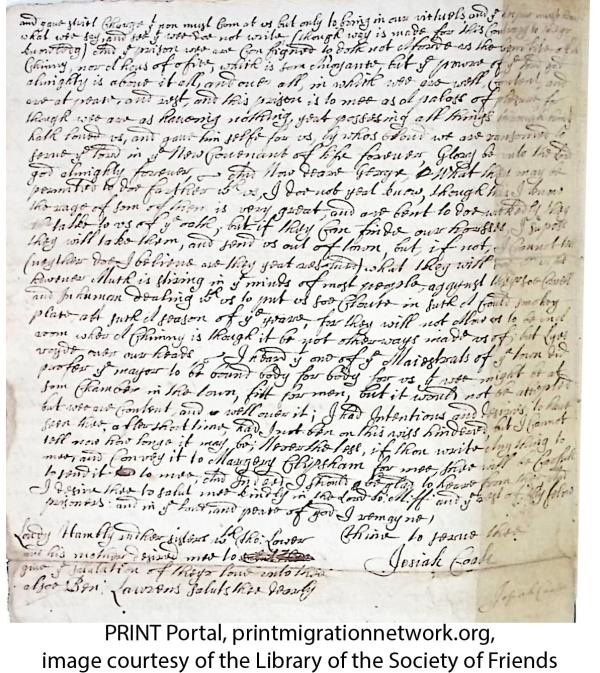 and gave strict Charge yt non must Com at us but only to bring in our victuels and ye
what wee say, and see yt wee doe not write (though way is made for this Contrary to their
knowledg) And ye prison wee are Configned to doth not aforde us the
Chimny, nor hous of ofice, which is som anoyante, but ye powre of ye Lord god
almighty is above it all, and over all, in which wee are well Content, and
are at peace, and rest, and this prison is to mee as a palass of
though wee are as haveing nothing, yeat possesing all things through him
hath loved us, and gave him selfe for us, by whos blood we are ransomed to
serve ye Lord in ye New Covenant of life forever, Glory be unto the Lord
god almighty forever, And Now deare George, What they may be
permitted to doe farther wth us, I doe not yeat know, though
the rage of som of them is very great, and are bent to doe wicked
talke to us of ye oath, but if they Can finde our horsses, I supose
they will take them, and send us out of town, but, if not, I Cannot tell
(neyther doe I believe are they yeat resolved) what they will
However Much is stiring in ye minds of most people, against theise soe Cruell
and Inhuman dealing wth us to put us soe Close in such a Could smokey
place att such a season of ye yeare, for they will not allow us to be in
room wher a Chimny is though it be not other ways made us of; but
voyde over our heads. I heard yt one of ye Maiestrats of ye town did
profer ye mayor to be bound body for body for us, if wee might
som Chamber in the town, fitt for men, but it would not be accepted
but wee are Content, and well over it; I had Intentions and desires, to have
seen thee, after short time, had I not ben on this wiss hindered but I Cannot
tell now how longe it may be, Never the less, if thou write any thing to
mee, and Convey it to Margery Clipsham for mee, shee will be Carefull
to send it to mee, and Indeed I should be glad to heare from thee
I desire thee to salut mee kindly in the Lord to M: ff: and ye rest of thy fellow
prisoners: and in ye Love and peace of god I remayne,
Thine to serve thee
Josiah Coale
Loveday Hambly and her sisters
and his mother desired mee to
give ye salutation of theyr love unto thee
alsoe Ben: Lawrens saluts thee dearly
Josiah Coale
PRINT Portal, printmigrationnetwork.org,
image courtesy of the Library of the Society of Friends